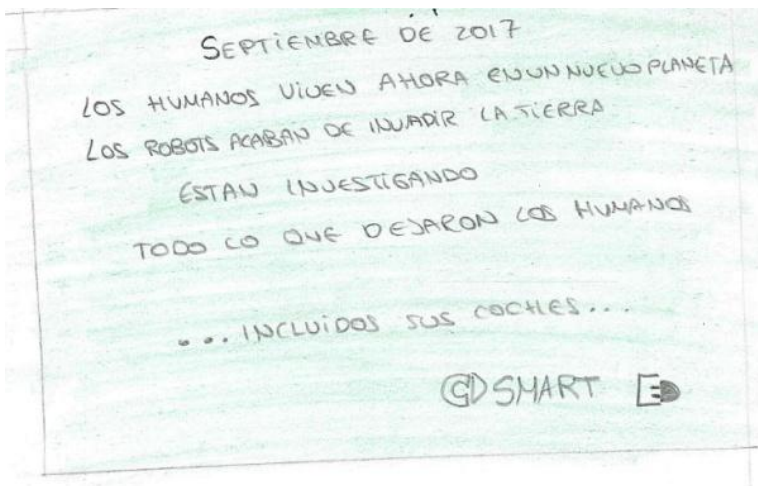 SEPTIEMBRE DE 2017
LOS HUMANOS VIVEN AHORA EN UN NUEVO PLANETA
LOS ROBOTS ACABAN DE INVADIR LA TIERRA
ESTAN INVESTIGANDO
TODO LO QUE DEJARON LOS HUMANOS
...INCLUIDOS SUS COCHES...
SMART